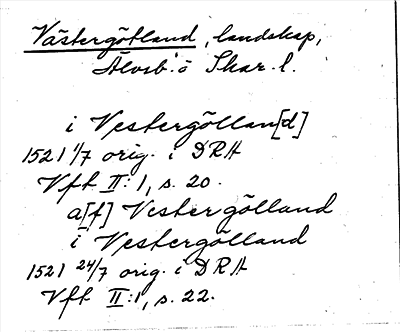 Västergötland, landskap,
Älvsb. o Skar. l.
i Vestergöllan[d]
1521 1/7 orig. i DRA
Vft II:1, s. 20.
a[f] Vestergölland
i Vestergölland
1521 24/7 orig. i DRA
Vft II:1, s. 22.